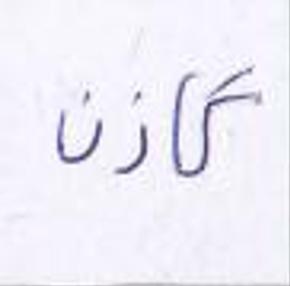 گازن